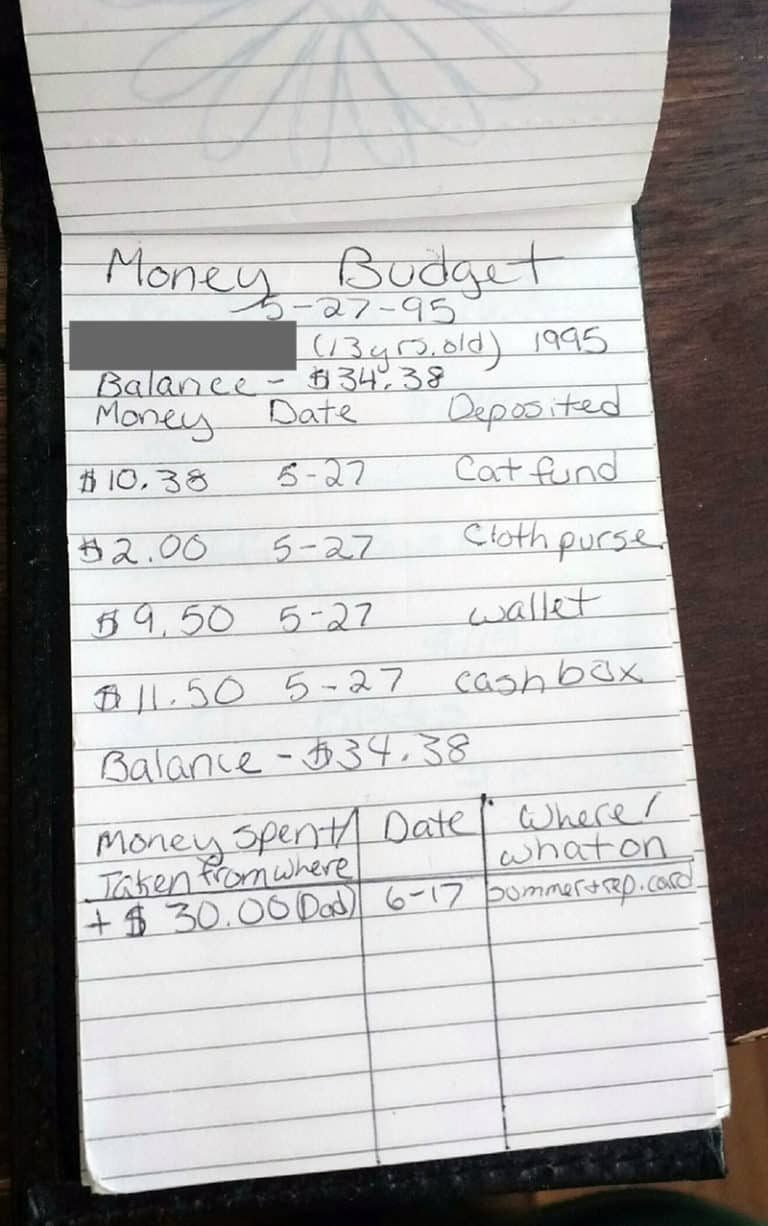 Money Budget
5-27-95
(13 yrs. old) 1995
Balance - $34.38
Money Date Deposited
$10.38 5-27 Cat fund
$2.00 5-27 Cloth purse
$9.50 5-27 wallet
$11.50 5-27 cash box
Balance - $34.38
Money spent/ Date Where/
Taken from where what on
+ $ 30.00 (Dad) 6-17 card